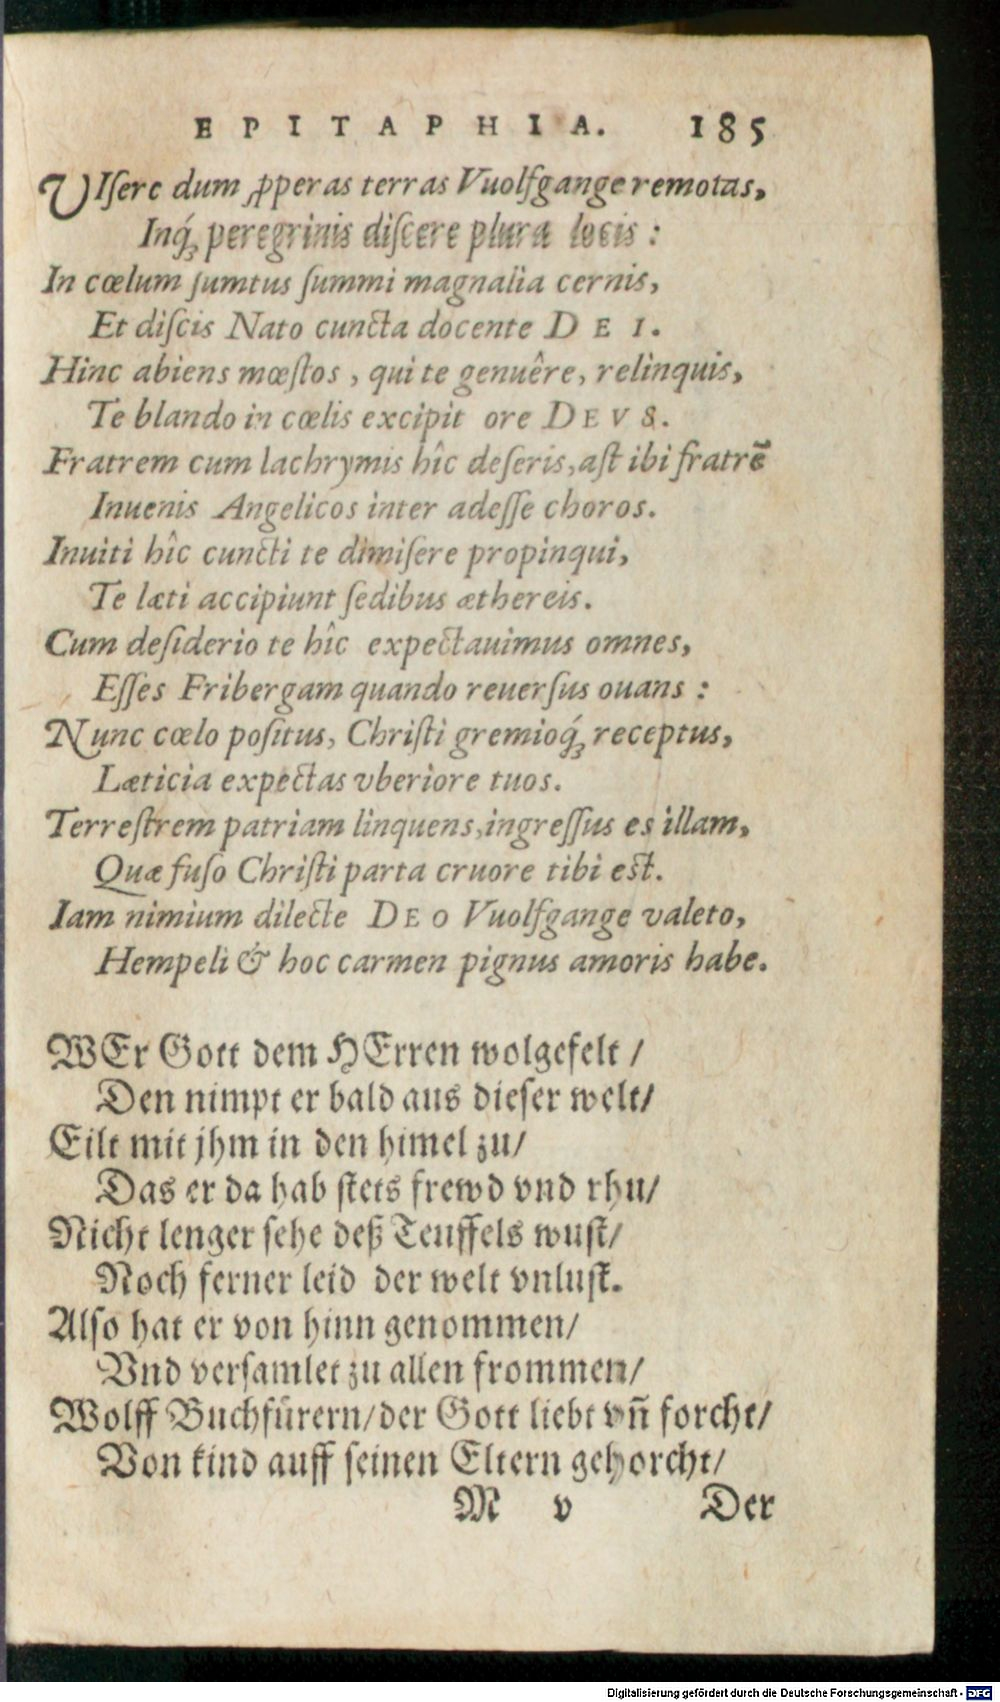 EPITAPHIA. 185
VIſere dum ꝓperas terras Vuolfgange remotas,
Inq́ꝫ peregrinis diſcere plura locis :
In cœlum ſumtus ſummi magnalia cernis,
Et diſcis Nato cuncta docente DEI.
Hinc abiens mœſtos, qui te genuêre, relinquis,
Te blando in cœlis excipit ore DEVS.
Fratrem cum lachrymis hîc deſeris, aſt ibi fratrē
Inuenis Angelicos inter adeſſe choros.
Inuiti hîc cuncti te dimiſere propinqui,
Te læti accipiunt ſedibus æthereis.
Cum deſiderio te hîc expectauimus omnes,
Eſſes Fribergam quando reuerſus ouans :
Nunc cœlo poſitus, Chriſti gremioq́ꝫ receptus,
Læticia expectas vberiore tuos.
Terreſtrem patriam linquens, ingreſſus es illam,
Quæ fuſo Chriſti parta cruore tibi eſt.
Iam nimium dilecte DEO Vuolfgange valeto,
Hempeli & hoc carmen pignus amoris habe.
WEr Gott dem HErren wolgefelt /
Den nimpt er bald aus dieſer welt/
Eilt mit jhm in den himel zu/
Das er da hab ſtets frewd vnd rhu/
Nicht lenger ſehe deß Teuffels wuſt/
Noch ferner leid der welt vnluſt.
Alſo hat er von hinn genommen/
Vnd verſamlet zu allen frommen/
Wolff Buchfürern/der Gott liebt vn̄ forcht/
Von kind auff ſeinen Eltern gehorcht/
M v Der
Digitalisierung gefördert durch die Deutsche Forschungsgemeinschaft - DFG